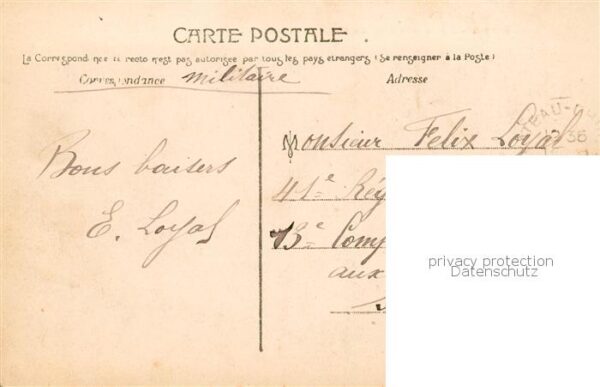 CARTE POSTALE
La Correspondance au recto n'est pas autorisée par tous les pays etrangers (Se renseigner à la Poste)
Correspondance militaire
Adresse
Bons baisers
E. Loyal
Monsieur Felix Loyal
41e Rég
13e Comp
aux
privacy protection
Datenschutz